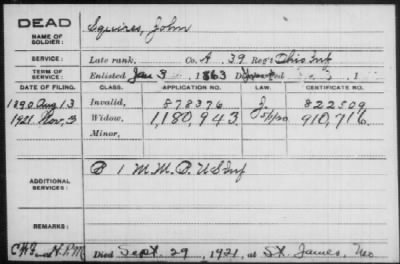 DEAD
NAME OF SOLDIER: Squires, John
SERVICE: Late rank, Co. A, 39 Reg't Ohio Inf
TERM OF SERVICE: Enlisted Jan 3 1863 1
DATE OF FILING. CLASS. APPLICATION NO. LAW. CERTIFICATE NO.
1890 Aug 13 Invalid, 878376 822509
1921 Nov, 3 Widow, 1,180,943 910,716
Minor,
ADDITIONAL SERVICES: B 1 M.M.B. US Inf
REMARKS:
Died Sept. 29, 1921, at St. James, Mo